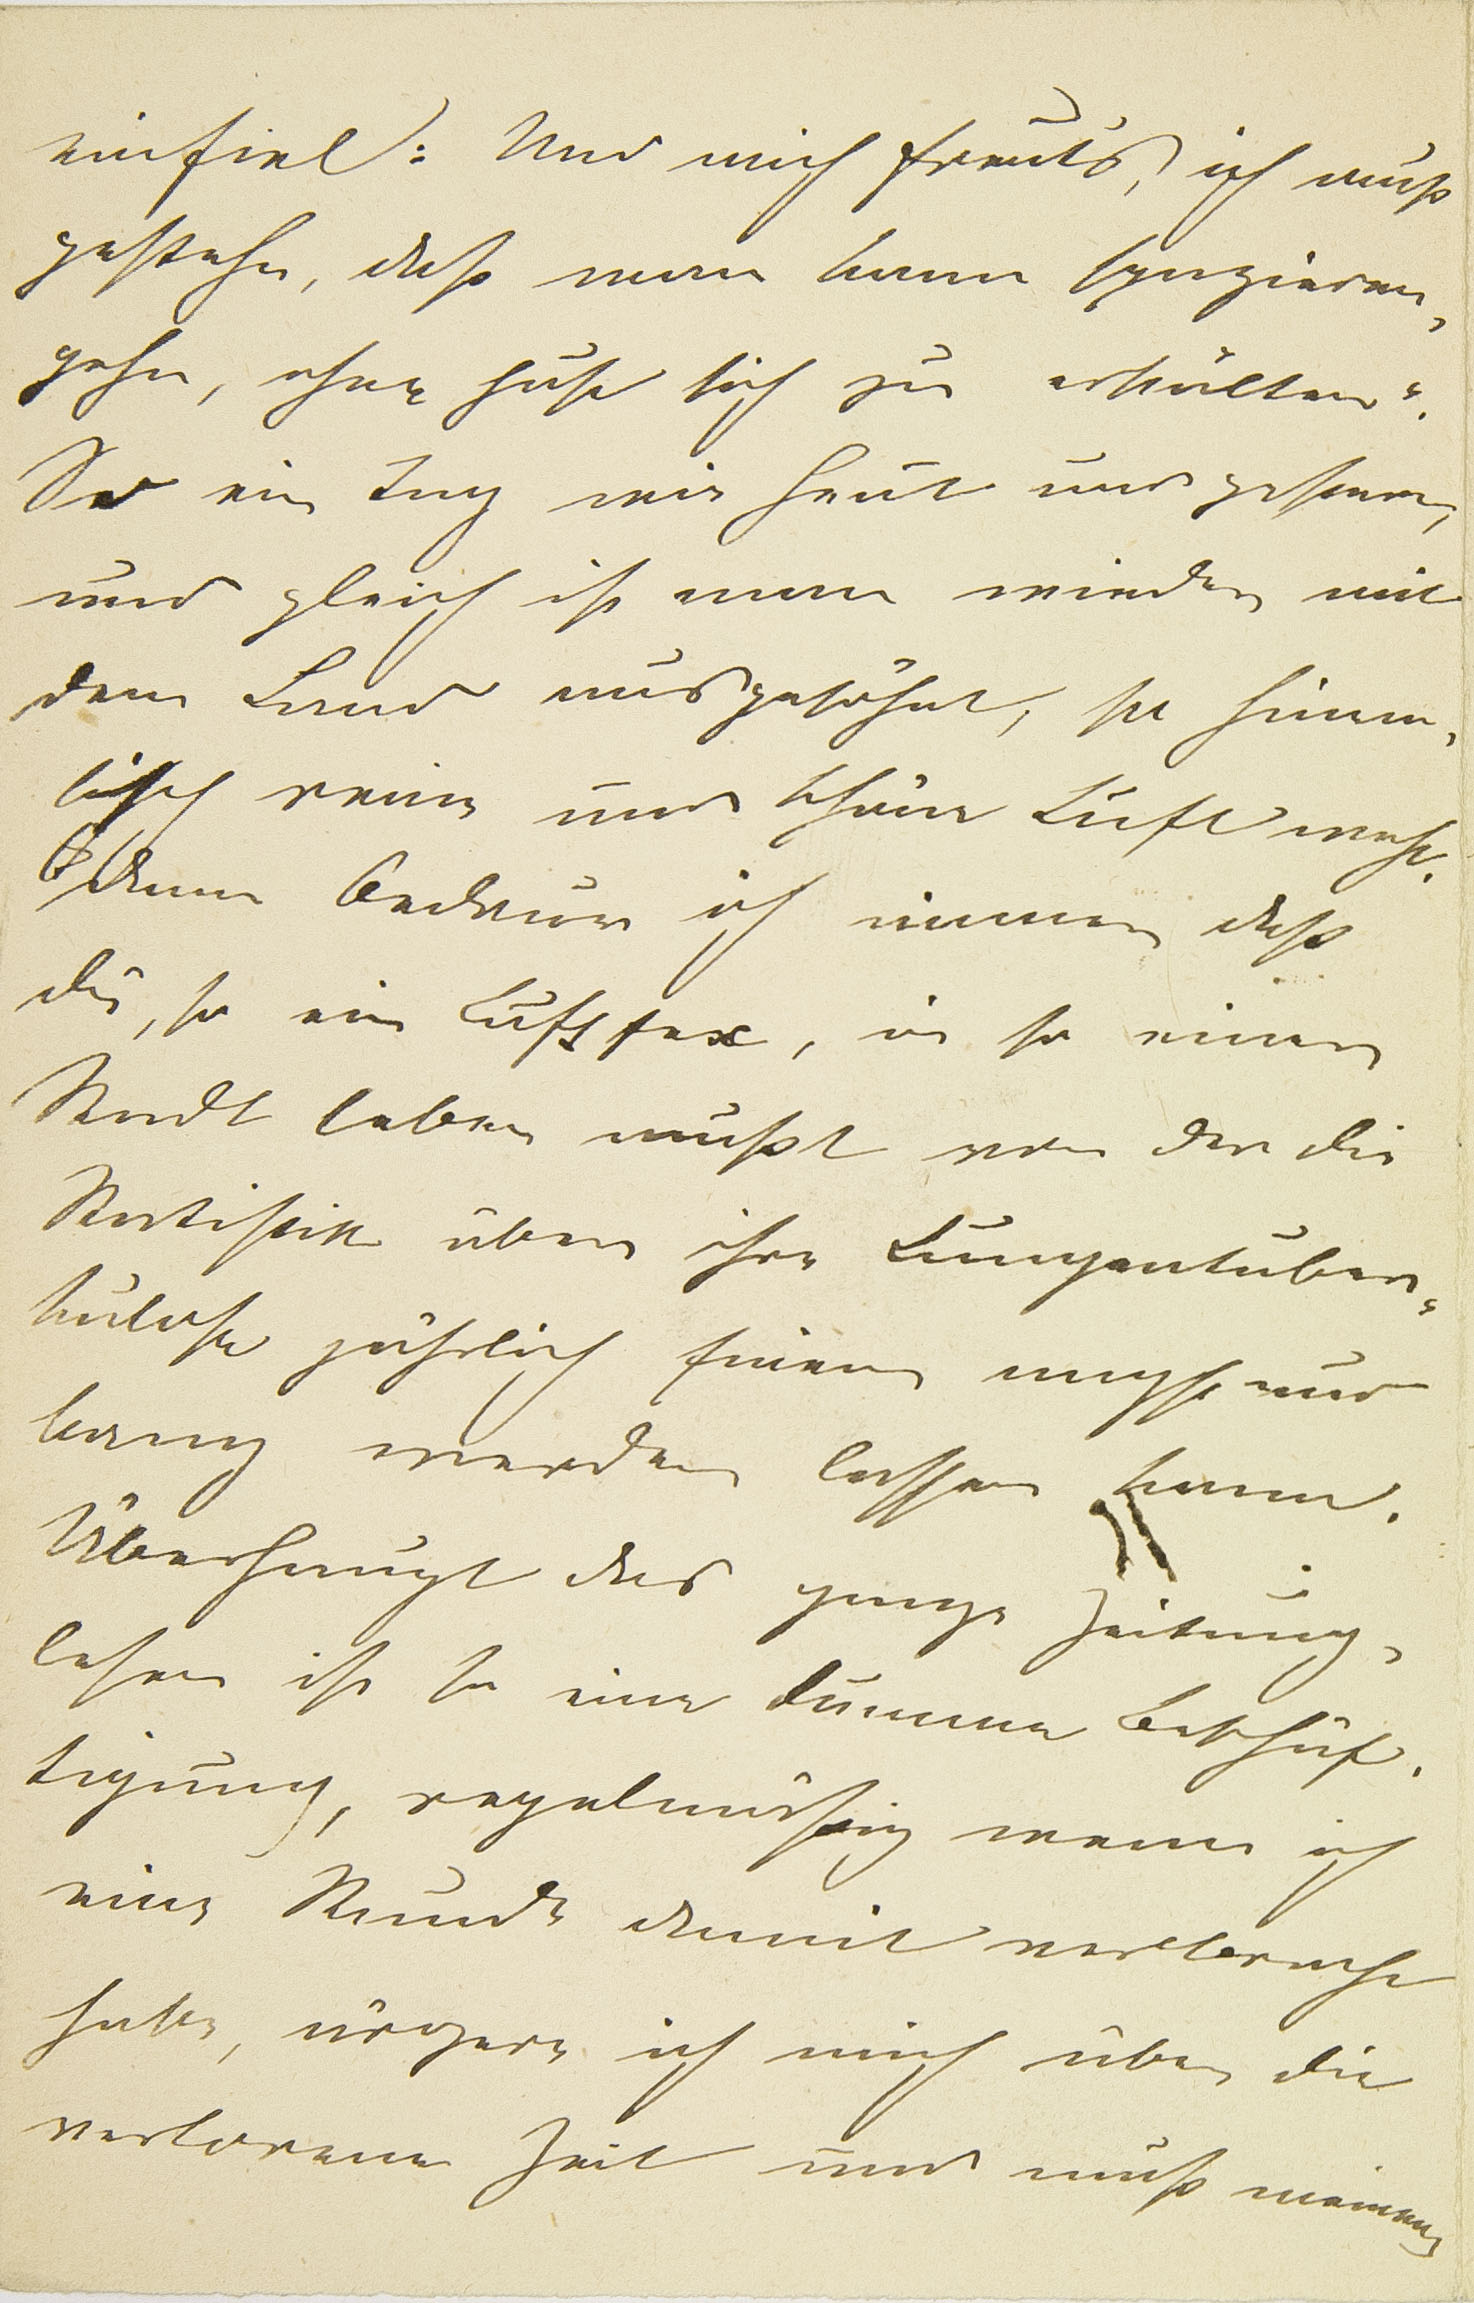 einfiel: Und mich freuts, ich muß
gestehn, daß man kann spazieren-
gehn, ohne sich zu erkälten".
So ein Tag wie heut und gestern,
und gleich ist man wieder mit
dem Land ausgesöhnt, so himm-
lisch reine und schöne Luft weht.
Dann bedaure ich immer daß
du, so ein Luftfex, in so einer
Stadt leben mußt von der die
Statistik über ihre Lungentuber-
kulose jährlich einem angst und
bang werden lassen kann.
Überhaupt das ganze Zeitung-
lesen ist so eine dumme Beschäf-
tigung, regelmäßig wenn ich
eine Stunde damit verbracht
habe, ärgere ich mich über die
verlorene Zeit und muß meinem